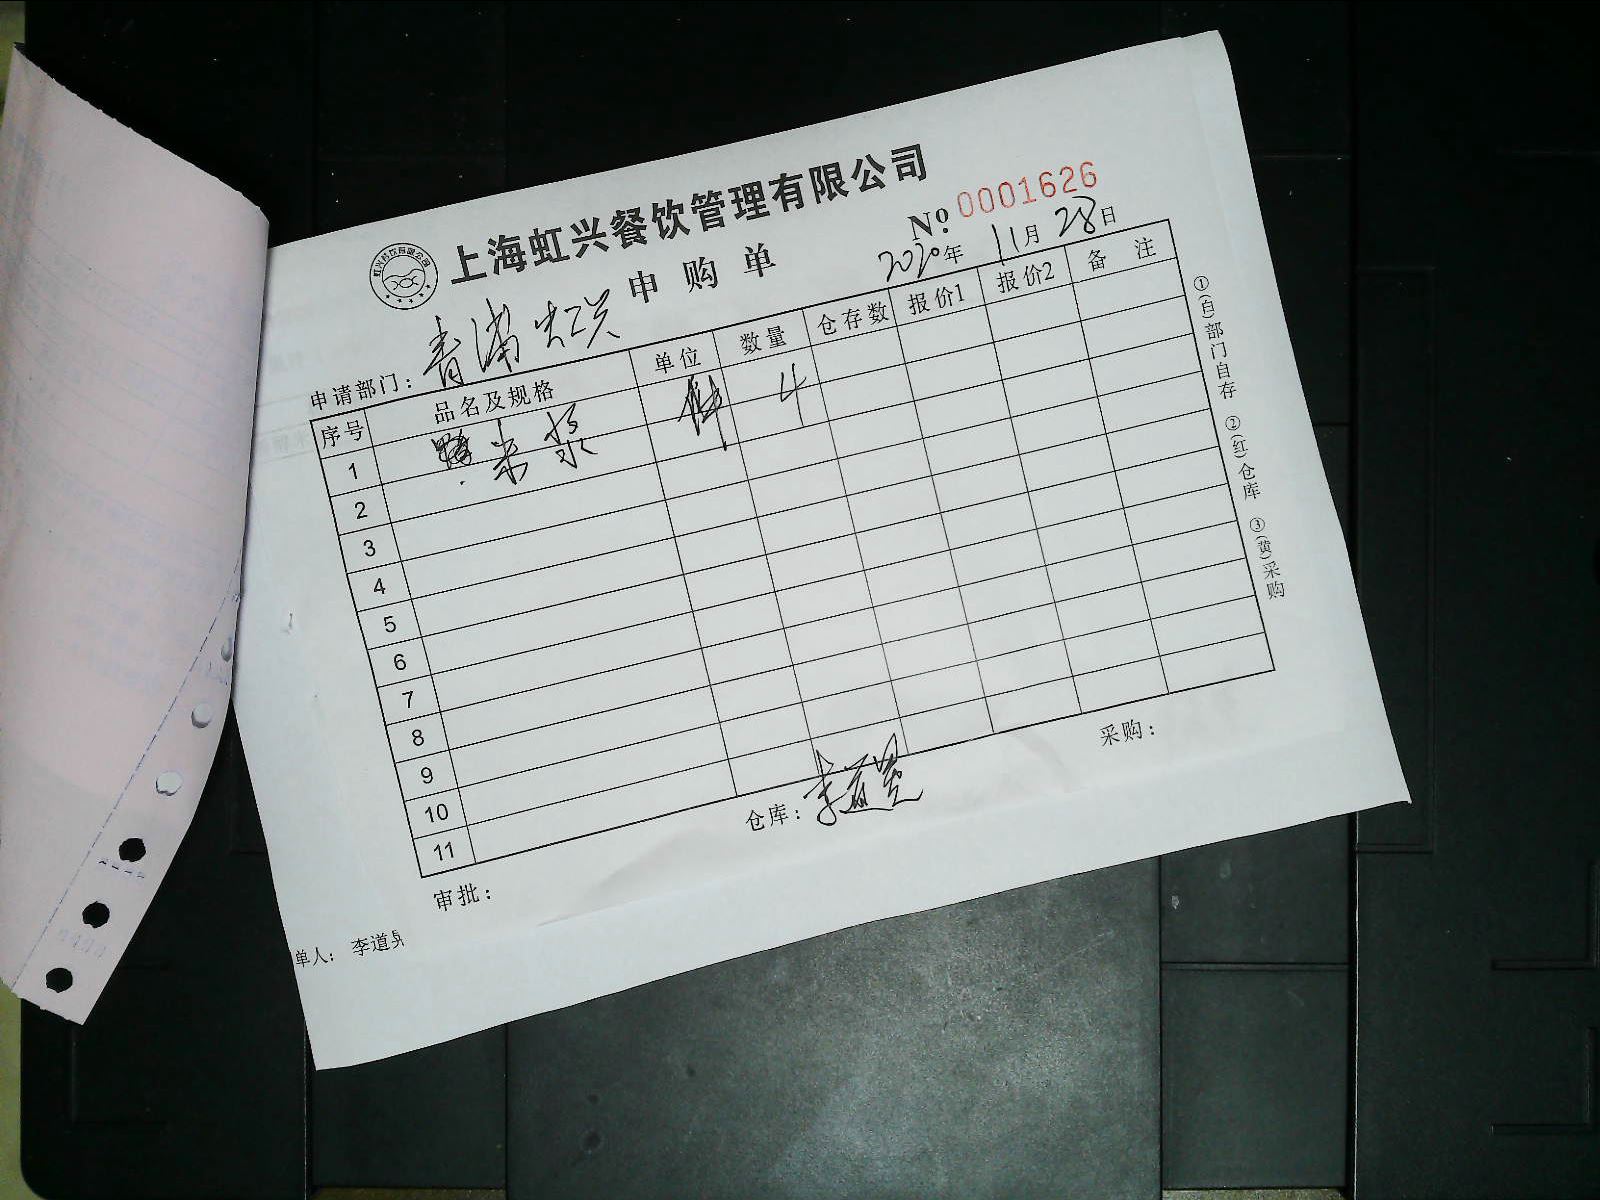 上海虹兴餐饮管理有限公司
申购单
№ 0001626
2020年 11月 28日
申请部门： 青浦
序号 品名及规格 单位 数量 仓存数 报价1 报价2 备注
1 米浆 件 4
2
3
4
5
6
7
8
9
10
11
审批： 仓库： 李道 采购：
单人： 李道
①(白)部门自存 ②(红)仓库 ③(黄)采购